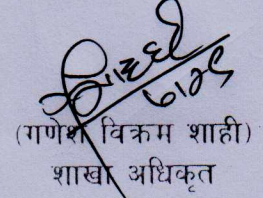 (गणेश विक्रम शाही)
शाखा अधिकृत